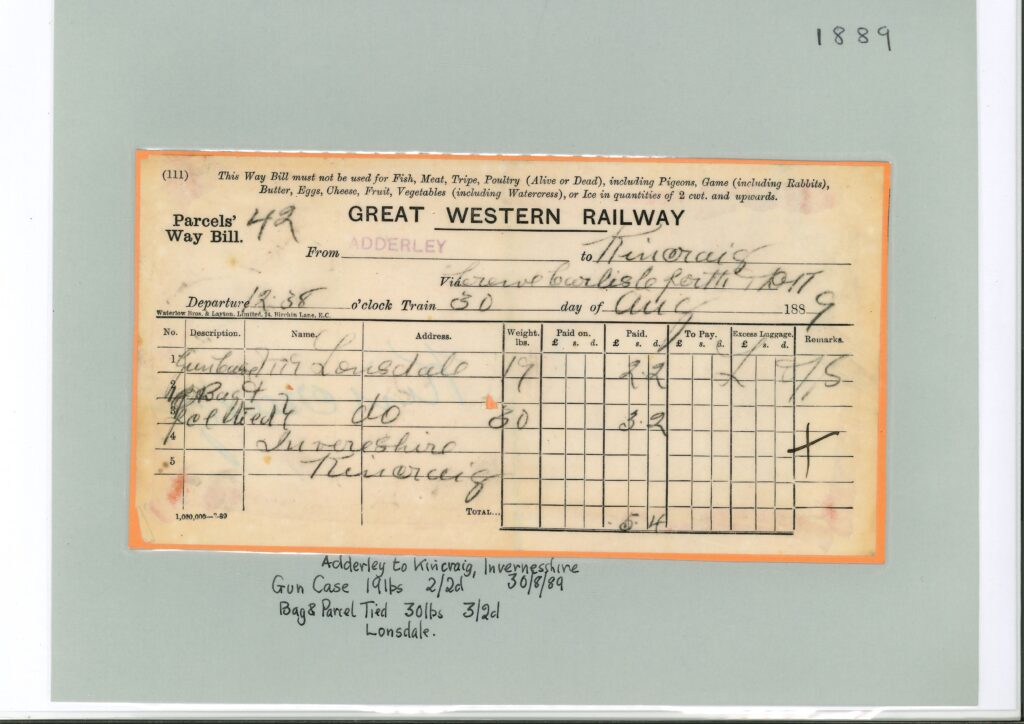 1889
(111) This Way Bill must not be used for Fish, Meat, Tripe, Poultry (Alive or Dead), including Pigeons, Game (including Rabbits),
Butter, Eggs, Cheese, Fruit, Vegetables (including Watercress), or Ice in quantities of 2 cwt. and upwards.
Parcels' Way Bill. 42
GREAT WESTERN RAILWAY
From ADDERLEY to Kincraig
Via Crewe Carlisle Perth
Departure 12.38 o'clock Train 30 day of Aug 1889
Waterlow Bros. & Layton, Limited, 24, Birchin Lane, E.C.
No. Description. Name. Address. Weight. lbs. Paid on. £ s. d. Paid. £ s. d. To Pay. £ s. d. Excess Luggage. £ s. d. Remarks.
1 Guncase Lonsdale 19 2 2
2 Bag &
3 tied do 30 3 2
4 Invereshire
5 Kincraig
TOTAL... 5 4
1,000,000—7-89
Adderley to Kincraig, Invernesshire
Gun Case 19lbs 2/2d 30/8/89
Bag & Parcel Tied 30lbs 3/2d
Lonsdale.